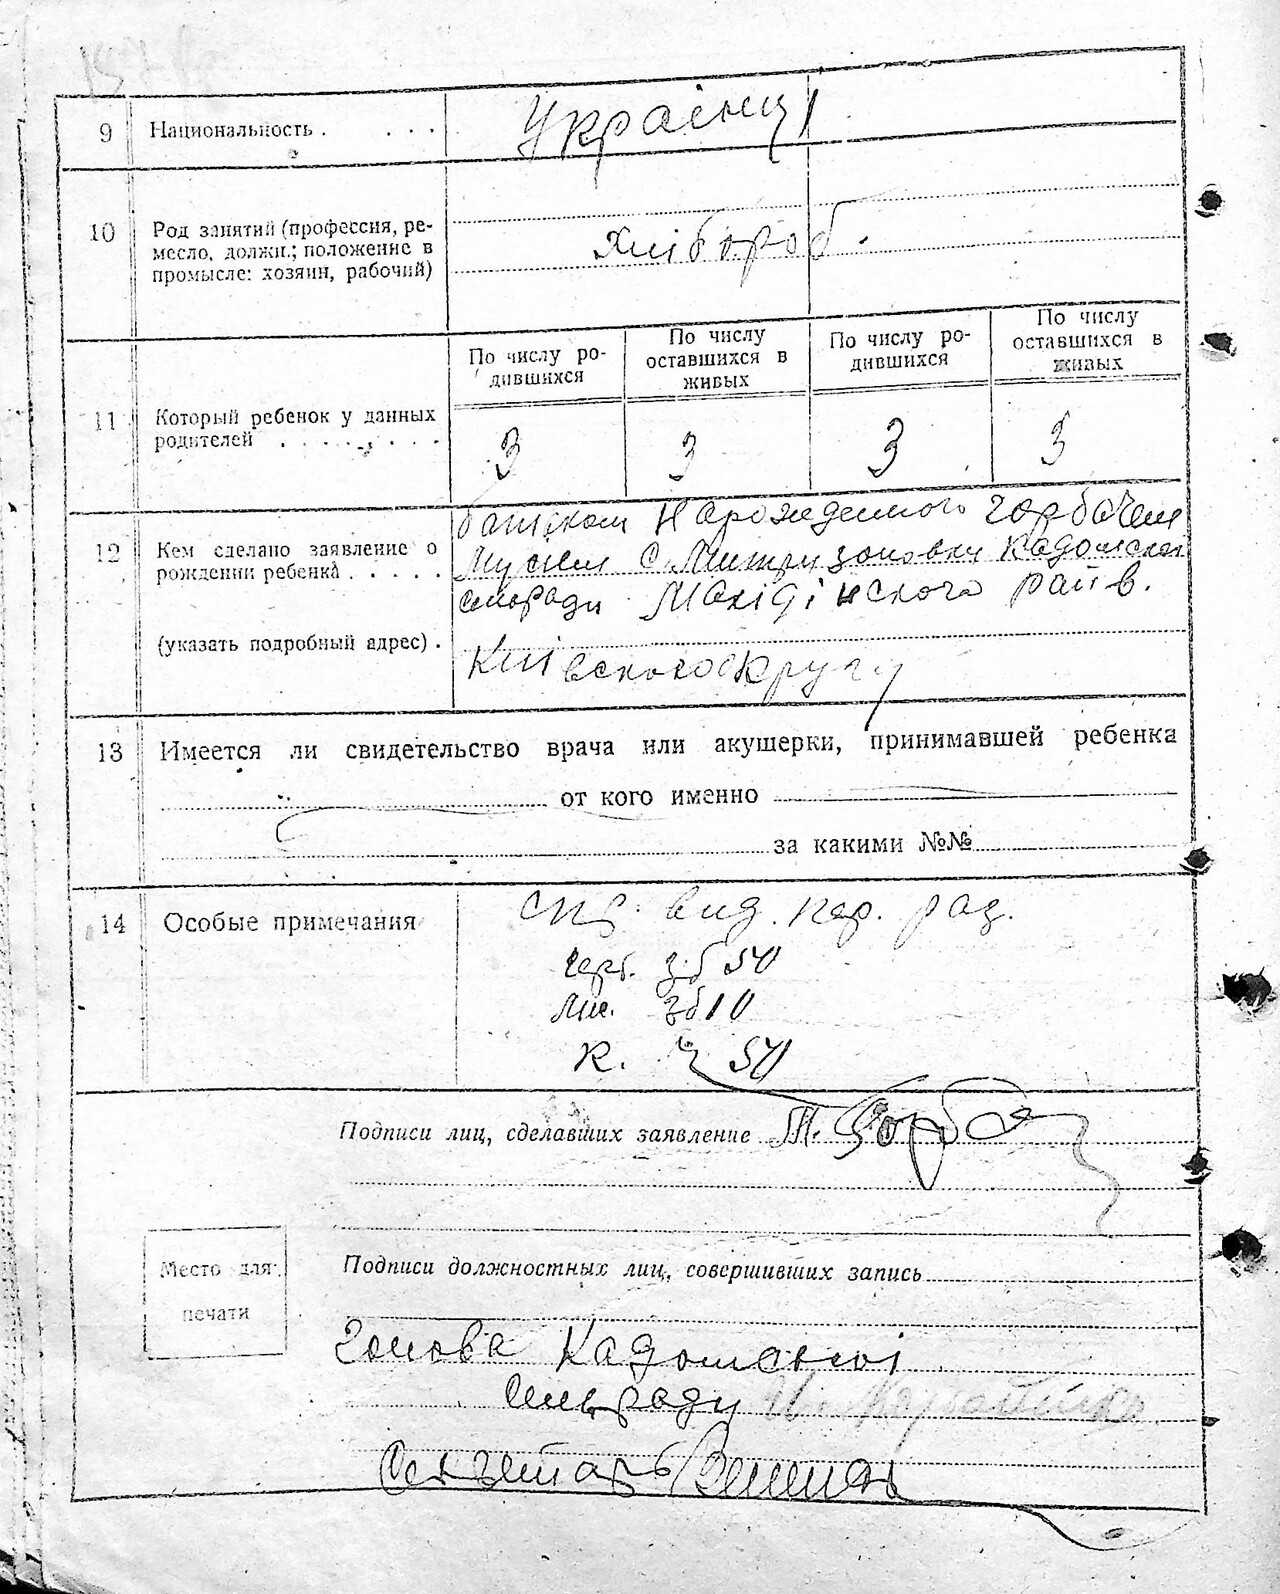 9 Национальность . . . . Українці
10 Род занятий (профессия, ре-
месло, должн.; положение в
промысле: хозяин, рабочий)
хлібороб.
11 Который ребенок у данных
родителей . . . . . . . .
По числу ро-
дившихся
По числу
оставшихся в
живых
По числу ро-
дившихся
По числу
оставшихся в
живых
3 3 3 3
12 Кем сделано заявление о
рождении ребенка . . . . .
(указать подробный адрес) .
батьком Нарожденного Горбачем
Мусієм С. Кадомської
сільради району
Київского округу
13 Имеется ли свидетельство врача или акушерки, принимавшей ребенка
от кого именно
за какими №№
14 Особые примечания
вид. пер. раз.
герб. зб 50
зб 10
к. 50
Подписи лиц, сделавших заявление М. Горба
Место для
печати
Подписи должностных лиц, совершивших запись
Голова Кадомської
Сільради
Секретарь